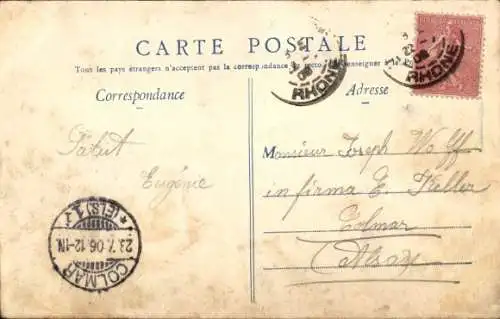 CARTE POSTALE
Tous les pays étrangers n'acceptent pas la correspondance au recto, se renseigner
Correspondance
Adresse
RHONE
RHONE
Salut
Eugénie
Monsieur Joseph Wolff
in firma E. Keller
Colmar
(Alsace)
COLMAR
23.7.06.12-1N.
*(ELS)1.*